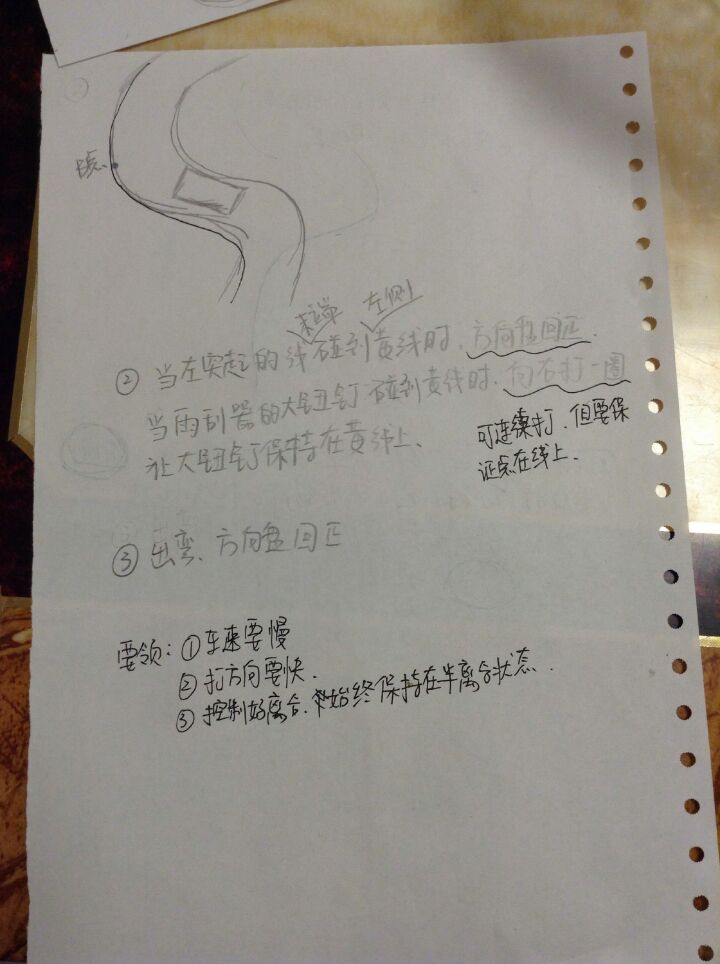 末端 左侧
② 当左突起的线碰到黄线时，方向盘回正.
当雨刮器的大钮钉碰到黄线时，向右打一圈
让大钮钉保持在黄线上、
可连续打，但要保
证点在线上、
③ 出弯、方向盘回正
要领：①车速要慢
②打方向要快.
③控制好离合、始终保持在半离合状态.